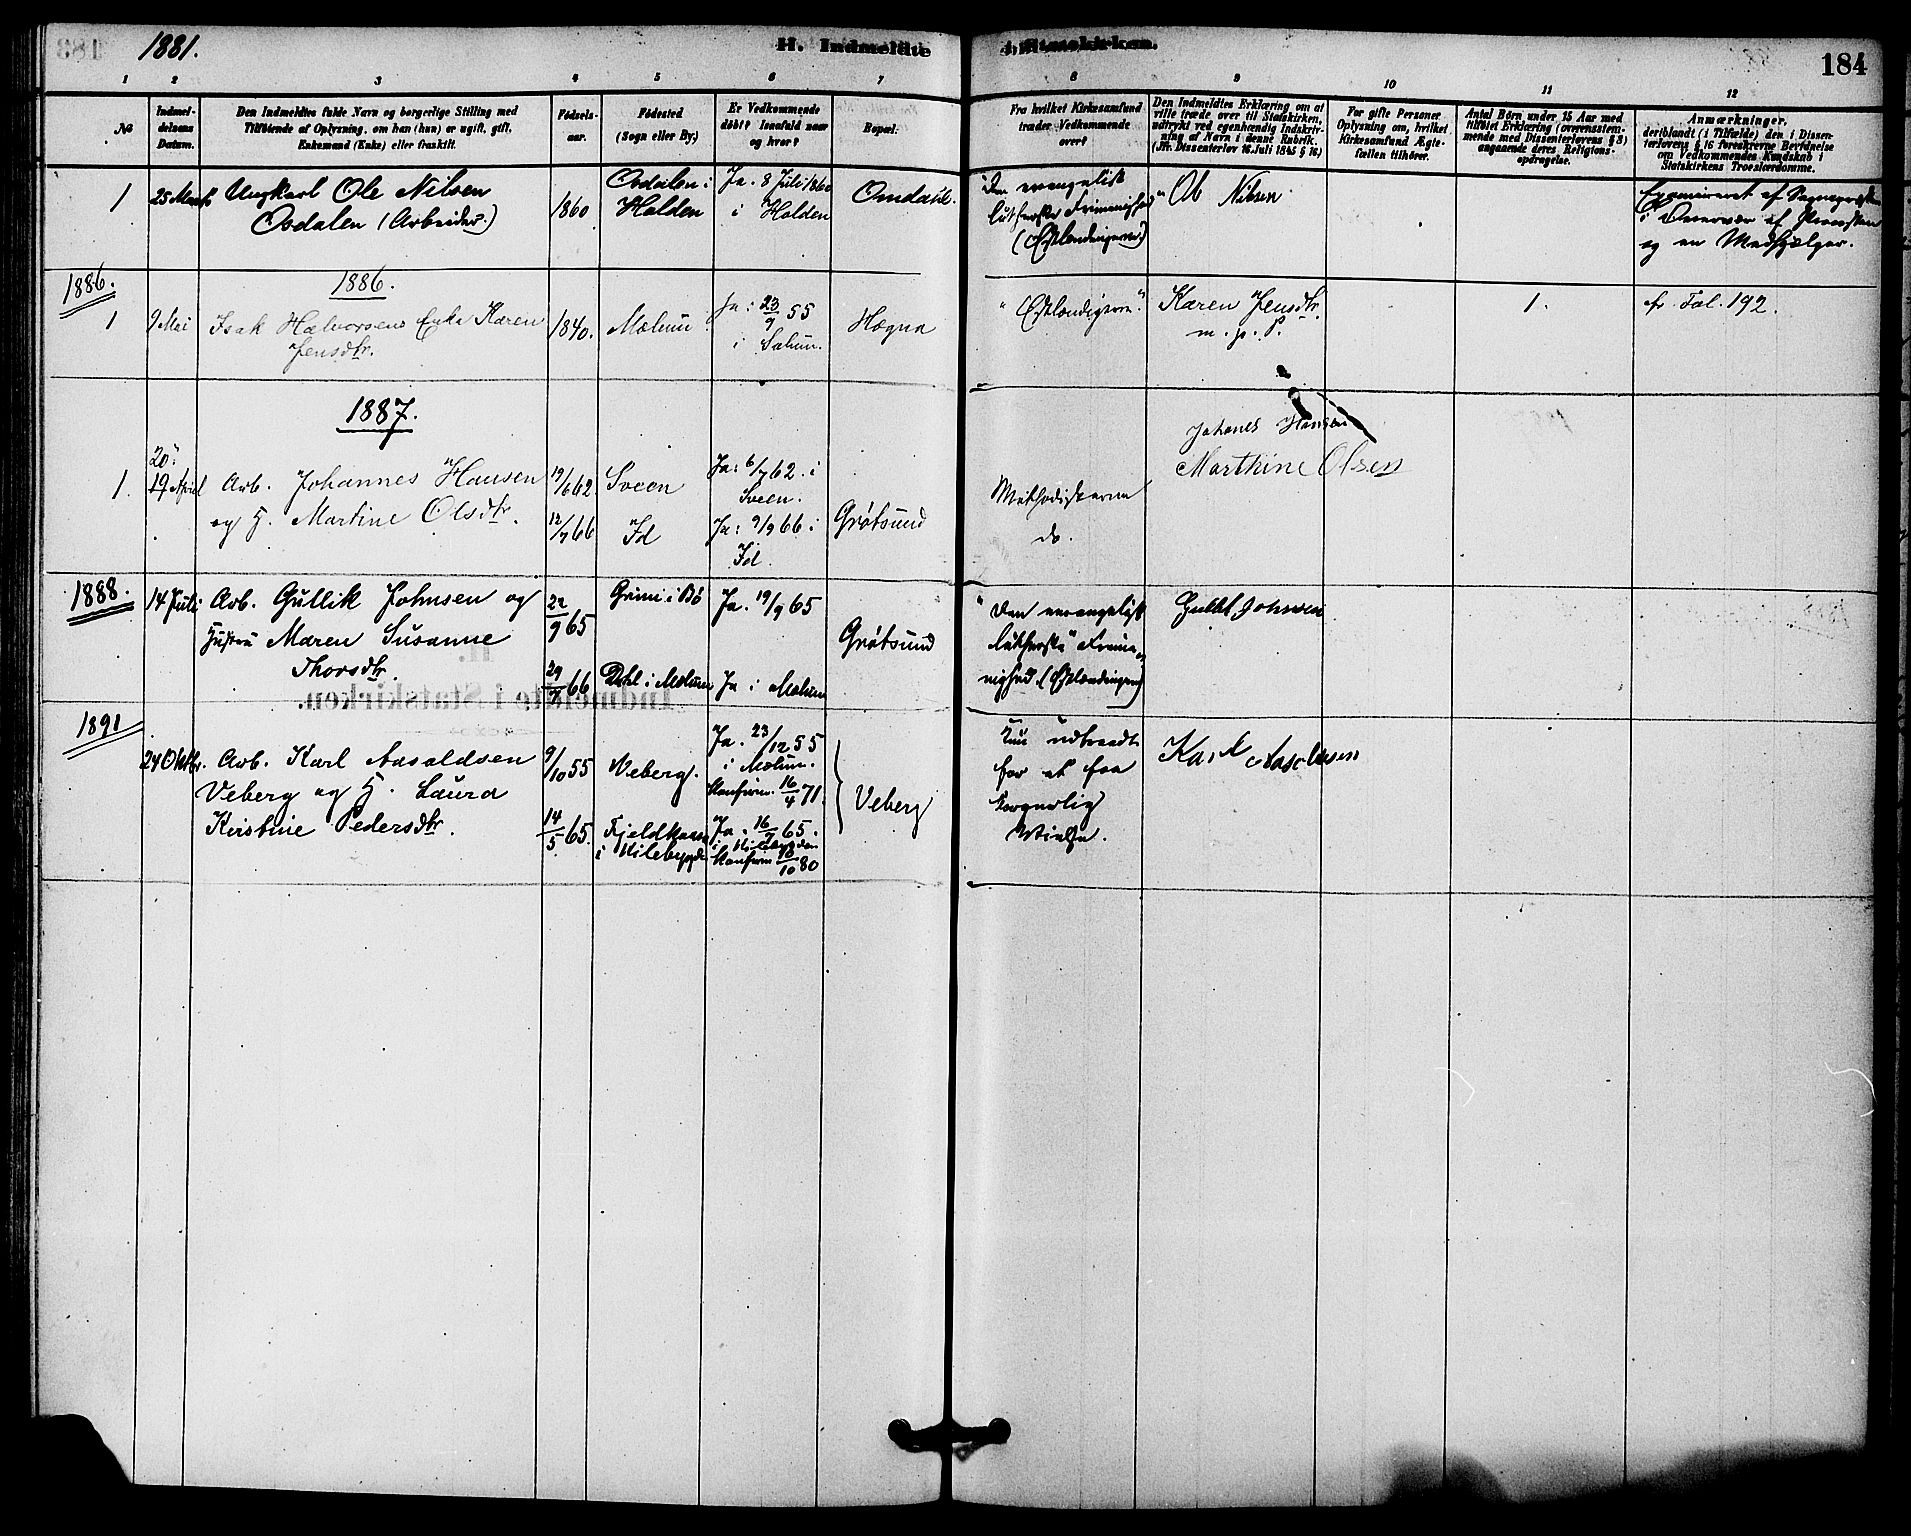 1881.
H. Indmeldte i Statskirken.
184
1 2 3 4 5 6 7 8 9 10 11 12
№
Indmel-
delsens
Datum.
Den Indmeldtes fulde Navn og borgerlige Stilling med
Tilføiende af Oplysning, om han (hun) er ugift, gift,
Enkemand (Enke) eller fraskilt.
Fødsels-
aar.
Fødested
(Sogn eller By.)
Er Vedkommende
døbt? Isaafald naar
og hvor?
Bopæl.
Fra hvilket Kirkesamfund
træder Vedkommende
over?
Den Indmeldtes Erklæring om at
ville træde over til Statskirken,
udtrykt ved egenhændig Indskriv-
ning af Navn i denne Rubrik.
(Jfr. Dissenterlov 16 Juli 1845 § 16)
For gifte Personer
Oplysning om, hvilket
Kirkesamfund Ægte-
fællen tilhører.
Antal Børn under 15 Aar med
tilføiet Erklæring (overensstem-
mende med Dissenterlovens § 8)
angaaende deres Religions-
opdragelse.
Anmærkninger,
deriblandt (i Tilfælde) den i Dissen-
terlovens § 16 foreskrevne Bevidnelse
om Vedkommendes Kundskab i
Statskirkens Troeslærdomme.
1
25 Marts
Ungkarl Ole Nilsen
Osdalen (Arbeider.)
1860
Osdalen i
Holden
Ja. 8 Juli 1860
i Holden
Omdahl.
"Den evangelisk
lutherske Frimenighed"
Ole Nilsen
Examineret af Sognepræsten
i Overvær af Provsten
og en Medhjælper.
1886.
1886.
1
9 Mai
Isak Halvorsens Enke Karen
Jensdtr.
1840.
Mælum
Ja: 23/9 55
i Solum.
Hægna
Karen Jensdtr.
m. p. P.
1.
cfr. Fol. 192.
1887.
1.
20
19 April
Arb. Johannes Hansen
og H. Martine Olsdtr.
19/6 62.
12/7 66
Sveen
Id
Ja: 6/7 62. i
Sveen.
Ja: 9/9 66 i
Id.
Grøtsund
Methodisterne
do.
Johanes Hansen
Marthine Olsen
1888.
14 Juli
Arb. Gullik Johnsen og
Hustru Maren Susanne
Thorsdtr.
22/9 65
29/7 66
Grini i Bø
Dahl i Mælum
Ja. 19/9 65
Ja i Mælum
Grøtsund
"Den evangelisk
lutherske" Frime-
nighed.
Gullik Johnsen
1891
24 Oktbr.
Arb. Karl Aasoldsen
Veberg og H. Laura
Kirstine Pedersdtr.
9/10 55
14/5 65.
Veberg.
Fjeldkaasa
i Hilebygden
Ja. 23/12 55
i Mælum.
Konfirm. 16/4 71.
Ja. 16/7 65.
i Hilebygden
Konfirm. 10/10 80
Veberg
Kun udtraadt
for at faa
borgerlig
Vielse.
Karl Aasoldsen